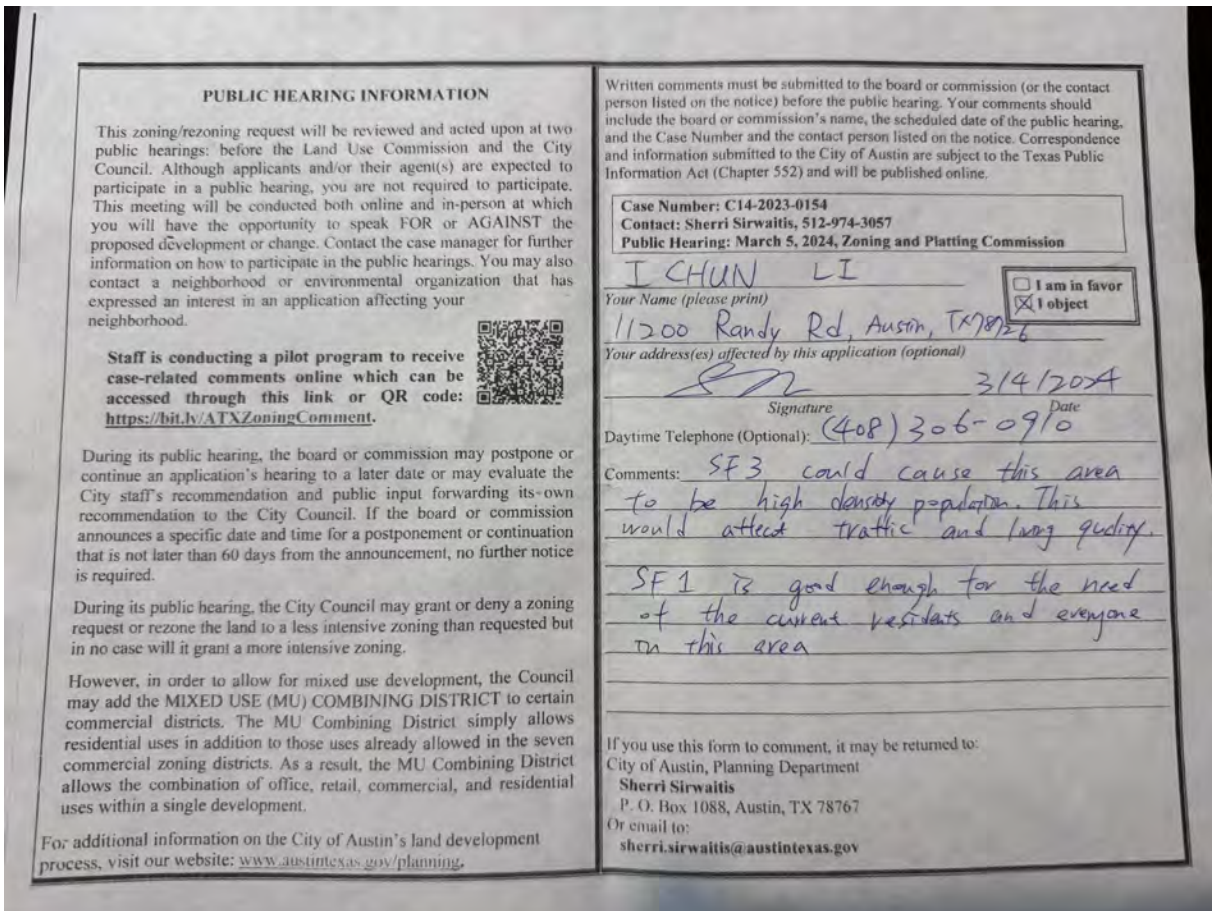 PUBLIC HEARING INFORMATION
This zoning/rezoning request will be reviewed and acted upon at two
public hearings: before the Land Use Commission and the City
Council. Although applicants and/or their agent(s) are expected to
participate in a public hearing, you are not required to participate.
This meeting will be conducted both online and in-person at which
you will have the opportunity to speak FOR or AGAINST the
proposed development or change. Contact the case manager for further
information on how to participate in the public hearings. You may also
contact a neighborhood or environmental organization that has
expressed an interest in an application affecting your
neighborhood.
Staff is conducting a pilot program to receive
case-related comments online which can be
accessed through this link or QR code:
https://bit.ly/ATXZoningComment.
During its public hearing, the board or commission may postpone or
continue an application's hearing to a later date or may evaluate the
City staff's recommendation and public input forwarding its own
recommendation to the City Council. If the board or commission
announces a specific date and time for a postponement or continuation
that is not later than 60 days from the announcement, no further notice
is required.
During its public hearing, the City Council may grant or deny a zoning
request or rezone the land to a less intensive zoning than requested but
in no case will it grant a more intensive zoning.
However, in order to allow for mixed use development, the Council
may add the MIXED USE (MU) COMBINING DISTRICT to certain
commercial districts. The MU Combining District simply allows
residential uses in addition to those uses already allowed in the seven
commercial zoning districts. As a result, the MU Combining District
allows the combination of office, retail, commercial, and residential
uses within a single development.
For additional information on the City of Austin's land development
process, visit our website: www.austintexas.gov/planning.
Written comments must be submitted to the board or commission (or the contact
person listed on the notice) before the public hearing. Your comments should
include the board or commission's name, the scheduled date of the public hearing,
and the Case Number and the contact person listed on the notice. Correspondence
and information submitted to the City of Austin are subject to the Texas Public
Information Act (Chapter 552) and will be published online.
Case Number: C14-2023-0154
Contact: Sherri Sirwaitis, 512-974-3057
Public Hearing: March 5, 2024, Zoning and Platting Commission
I CHUN LI
Your Name (please print)
I am in favor
I object
11200 Randy Rd, Austin, TX78726
Your address(es) affected by this application (optional)
3/4/2024
Signature Date
Daytime Telephone (Optional): (408) 306-0910
Comments: SF3 could cause this area
to be high density population. This
would affect traffic and living quality.
SF1 is good enough for the need
of the current residents and everyone
in this area
If you use this form to comment, it may be returned to:
City of Austin, Planning Department
Sherri Sirwaitis
P. O. Box 1088, Austin, TX 78767
Or email to:
sherri.sirwaitis@austintexas.gov